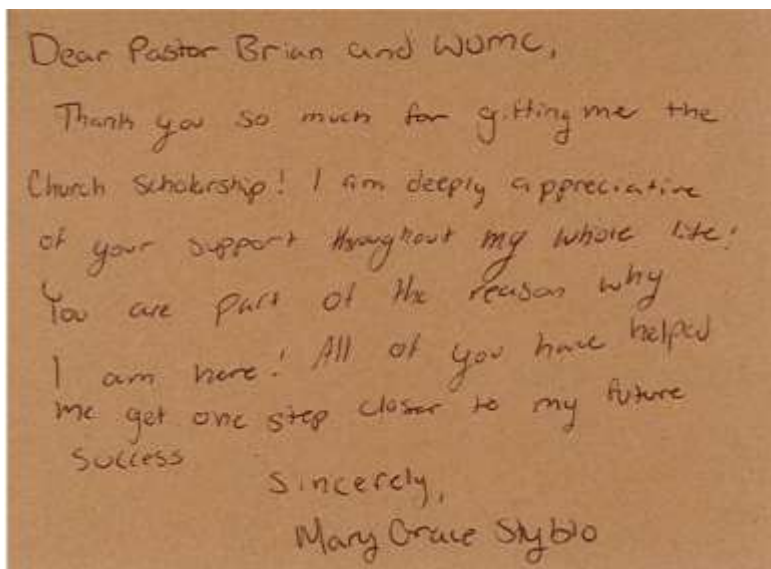 Dear Pastor Brian and WUMC,
Thank you so much for gifting me the
Church Scholarship! I am deeply appreciative
of your support throughout my whole life!
You are part of the reason why
I am here! All of you have helped
me get one step closer to my future
success
Sincerely,
Mary Grace Styblo